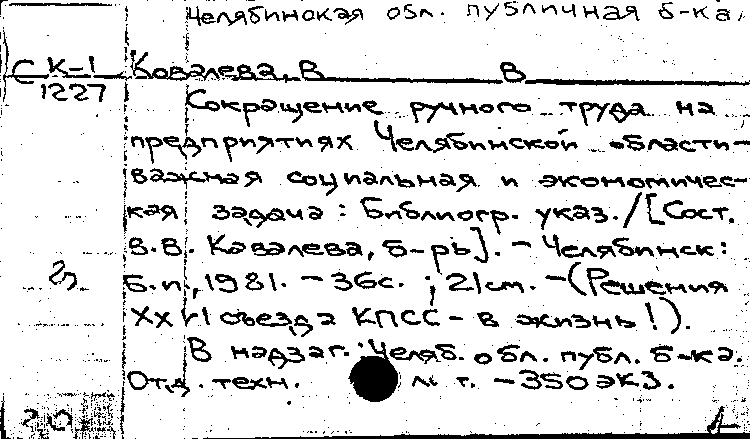 Челябинская обл. публичная б-ка.
С К-1
1227
Ковалева, В В
Сокращение ручного труда на
предприятиях Челябинской области-
важная социальная и экономичес-
кая задача : Библиогр. указ. / [Сост.
В.В. Ковалева, б-рь]. - Челябинск:
Б.и., 1981. - 36с. ; 21см. - (Решения
XXVI съезда КПСС - в жизнь!).
В надзаг.: Челяб. обл. публ. б-ка.
Отд. техн. лит. - 350 экз.